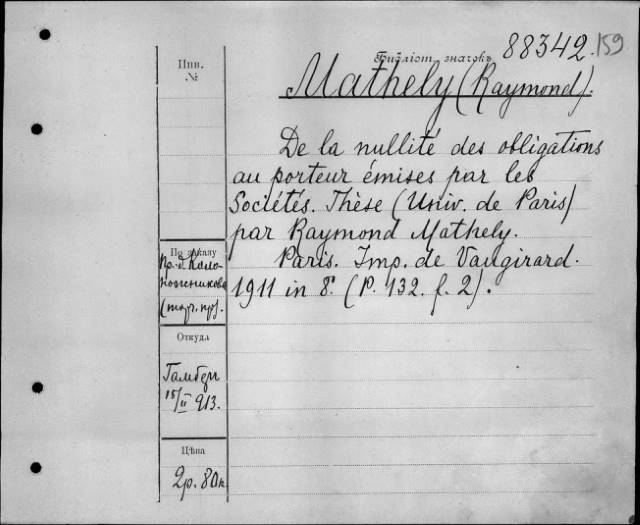 Инв.
№
Библіот. значокъ 88342.
159
Mathely (Raymond).
De la nullité des obligations
au porteur émises par les
Sociétés. Thèse (Univ. de Paris)
par Raymond Mathely.
Paris. Imp. de Vaugirard.
1911 in 8º. (P. 132. f. 2).
По заказу
(торг. пр.).
Откуда
15/II 913.
Цѣна
2р. 80к